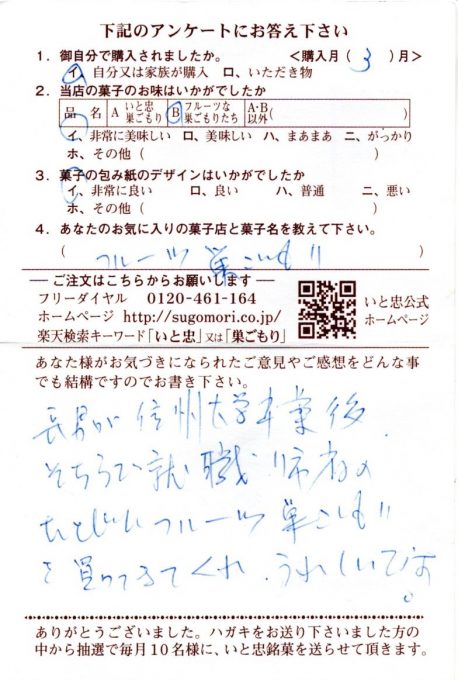 下記のアンケートにお答え下さい
1. 御自分で購入されましたか。 <購入月( 3 )月>
イ、自分又は家族が購入 ロ、いただき物
2. 当店の菓子のお味はいかがでしたか
品 名 A いと忠巣ごもり B フルーツな巣ごもりたち A・B以外( )
イ、非常に美味しい ロ、美味しい ハ、まあまあ ニ、がっかり
ホ、その他( )
3. 菓子の包み紙のデザインはいかがでしたか
イ、非常に良い ロ、良い ハ、普通 ニ、悪い
ホ、その他( )
4. あなたのお気に入りの菓子店と菓子名を教えて下さい。
( フルーツ 巣ごもり )
ご注文はこちらからお願いします
フリーダイヤル 0120-461-164
ホームページ http://sugomori.co.jp/
楽天検索キーワード「いと忠」又は「巣ごもり」
いと忠公式
ホームページ
あなた様がお気づきになられたご意見やご感想をどんな事
でも結構ですのでお書き下さい。
長男が信州大学卒業後、
そちらで就職 帰省の
たびに フルーツ 巣ごもり
を買ってきてくれ、うれしいです。
ありがとうございました。ハガキをお送り下さいました方の
中から抽選で毎月10名様に、いと忠銘菓を送らせて頂きます。